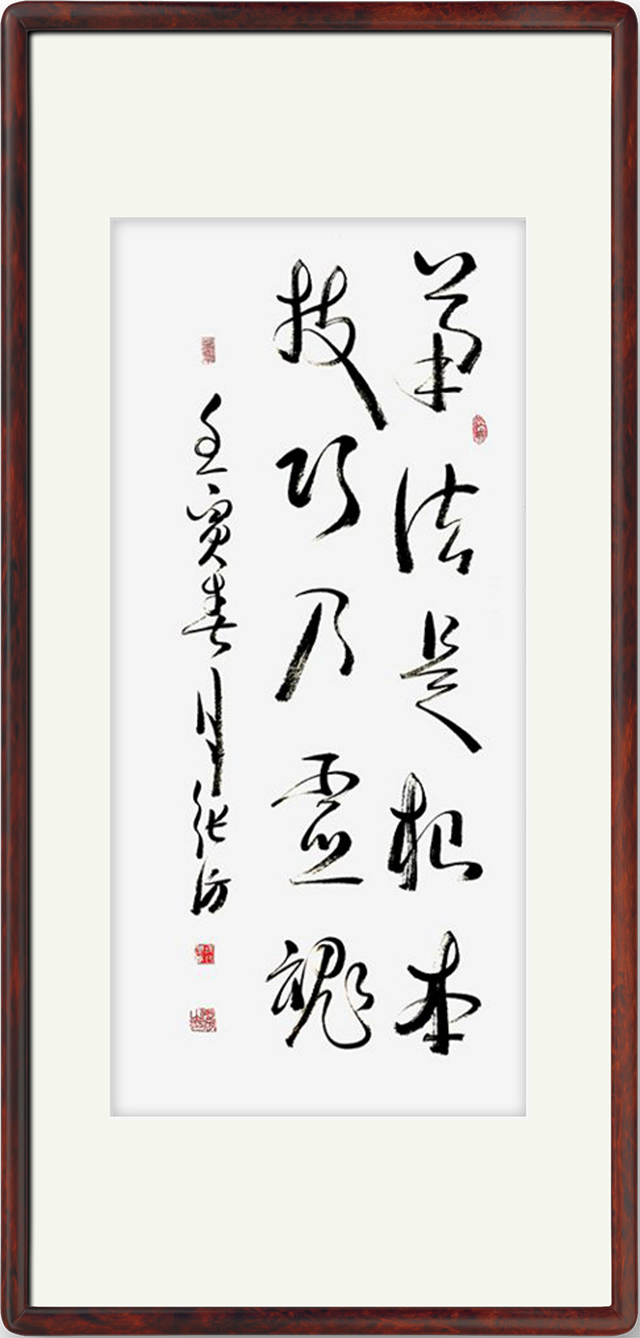 筆法是根本
技巧乃靈魂
壬寅春月张